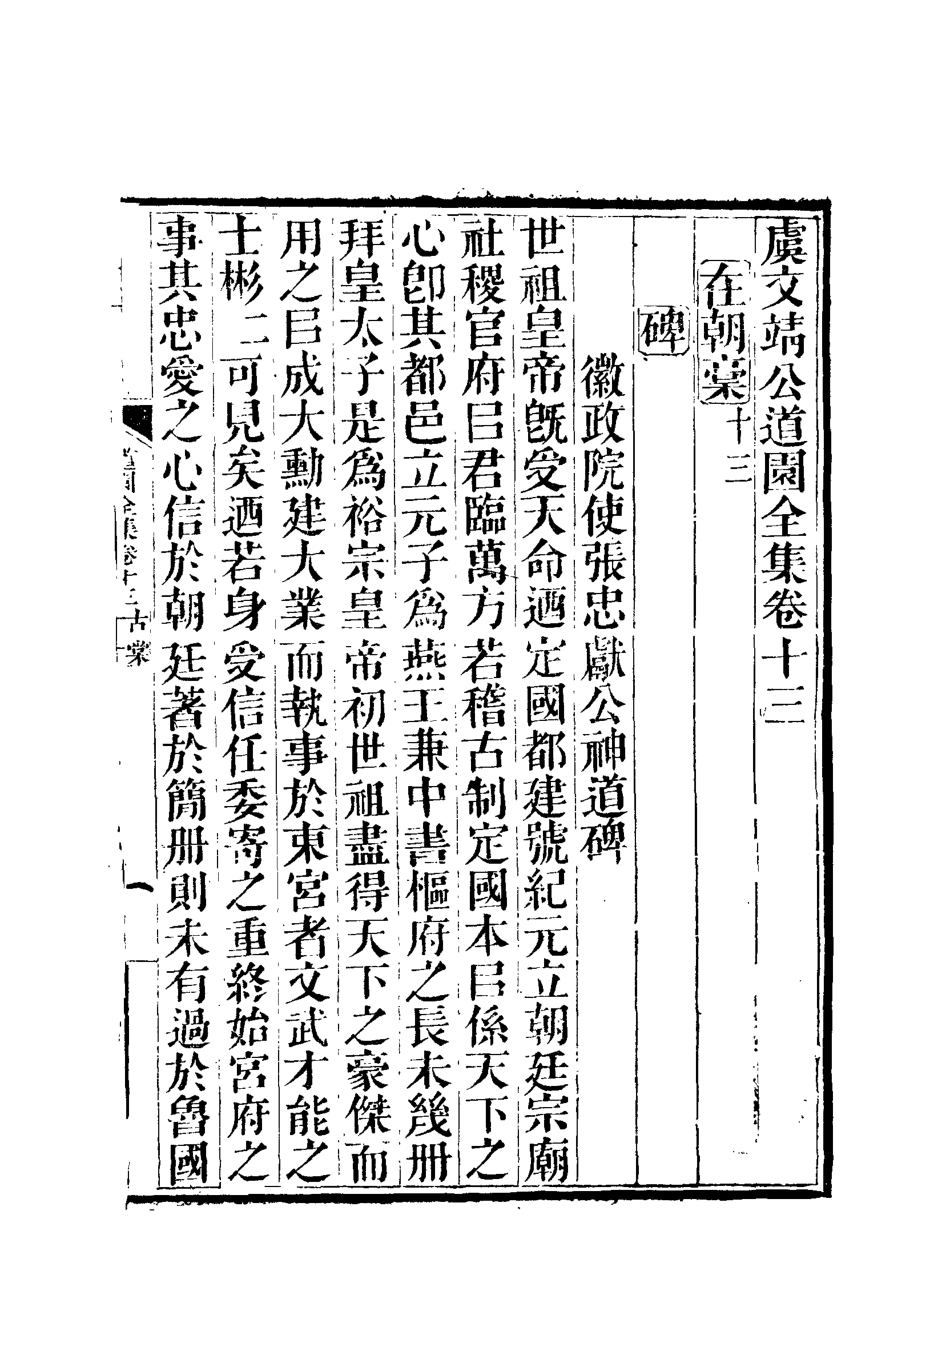 虞文靖公道園全集卷十三
在朝稾十三
碑
徽政院使張忠獻公神道碑
世祖皇帝旣受天命迺定國都建號紀元立朝廷宗廟
社稷官府㠯君臨萬方若稽古制定國本㠯係天下之
心卽其都邑立元子爲燕王兼中書樞府之長未幾册
拜皇太子是爲裕宗皇帝初世祖盡得天下之豪傑而
用之㠯成大勳建大業而執事於東宮者文武才能之
士彬二可見矣迺若身受信任委寄之重終始宮府之
事其忠愛之心信於朝廷著於簡册則未有過於魯國
道園全集卷十三 古棠
一